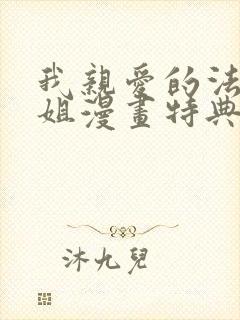 我親愛的法
姐漫畫特典
沐九兒